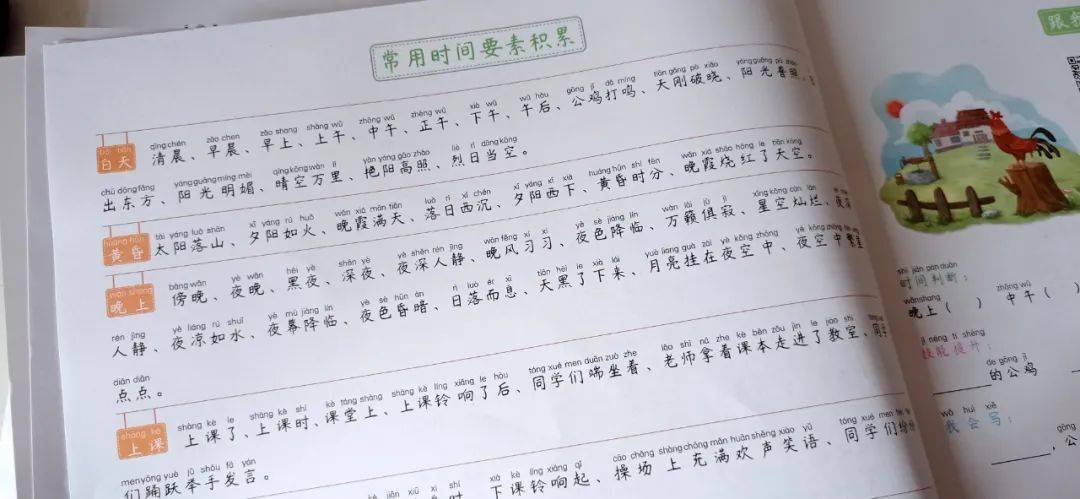 常用时间要素积累
bái tiān qīng chén zǎo chen zǎo shang shàng wǔ zhōng wǔ zhèng wǔ xià wǔ wǔ hòu gōng jī dǎ míng tiān gāng pò xiǎo yáng guāng pǔ zhào
白天 清晨、早晨、早上、上午、中午、正午、下午、午后、公鸡打鸣、天刚破晓、阳光普照、
chū dōng fāng yáng guāng míng mèi qíng kōng wàn lǐ yàn yáng gāo zhào liè rì dāng kōng
出东方、阳光明媚、晴空万里、艳阳高照、烈日当空。
huáng hūn tài yáng luò shān xī yáng rú huǒ wǎn xiá mǎn tiān luò rì xī chén xī yáng xī xià huáng hūn shí fēn wǎn xiá shāo hóng le tiān kōng
黄昏 太阳落山、夕阳如火、晚霞满天、落日西沉、夕阳西下、黄昏时分、晚霞烧红了天空。
wǎn shang bàng wǎn yè wǎn hēi yè shēn yè yè shēn rén jìng wǎn fēng xí xí yè sè jiàng lín wàn lài jù jì xīng kōng càn làn
晚上 傍晚、夜晚、黑夜、深夜、夜深人静、晚风习习、夜色降临、万籁俱寂、星空灿烂、
rén jìng yè liáng rú shuǐ yè mù jiàng lín yè sè hūn àn rì luò ér xī tiān hēi le xià lái yuè liang guà zài yè kōng zhōng yè kōng zhōng
人静、夜凉如水、夜幕降临、夜色昏暗、日落而息、天黑了下来、月亮挂在夜空中、夜空中繁星
diǎn diǎn
点点。
shàng kè shàng kè le shàng kè shí kè táng shàng shàng kè líng xiǎng le hòu tóng xué men duān zuò zhe lǎo shī ná zhe kè běn zǒu jìn le jiào shì tóng
上课 上课了、上课时、课堂上、上课铃响了后、同学们端坐着、老师拿着课本走进了教室、同学
men yǒng yuè jǔ shǒu fā yán
们踊跃举手发言。
xià kè líng xiǎng qǐ cāo chǎng shàng chōng mǎn huān shēng xiào yǔ tóng xué men
时、下课铃响起、操场上充满欢声笑语、同学们
跟我
shí jiān pàn duàn
时间判断：
wǎn shang zhōng wǔ
晚上（ ） 中午（ ）
jì néng tí shēng
技能提升：
de gōng jī
的公鸡
wǒ huì xiě
我会写：
gōng
，公